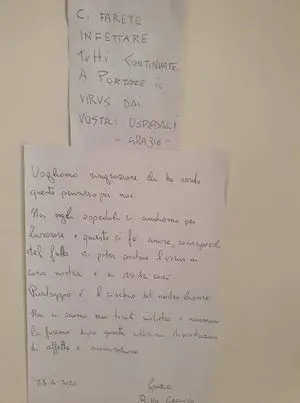 CI FARETE
INFETTARE
TUTTI CONTINUATE
A PORTARE IL
VIRUS DAI
VOSTRI OSPEDALI
- GRAZIE -
Vogliamo ringraziare chi ha avuto
questo pensiero per noi
Noi negli ospedali ci andiamo per
lavorare e questo ci fa onore, consapevoli
del fatto di poter portare il virus a
casa nostra e ai nostri cari.
Purtroppo è il rischio del nostro lavoro
Noi ci siamo mai tirati indietro e nemmeno
lo faremo dopo questa
di affetto e
23.4.2020